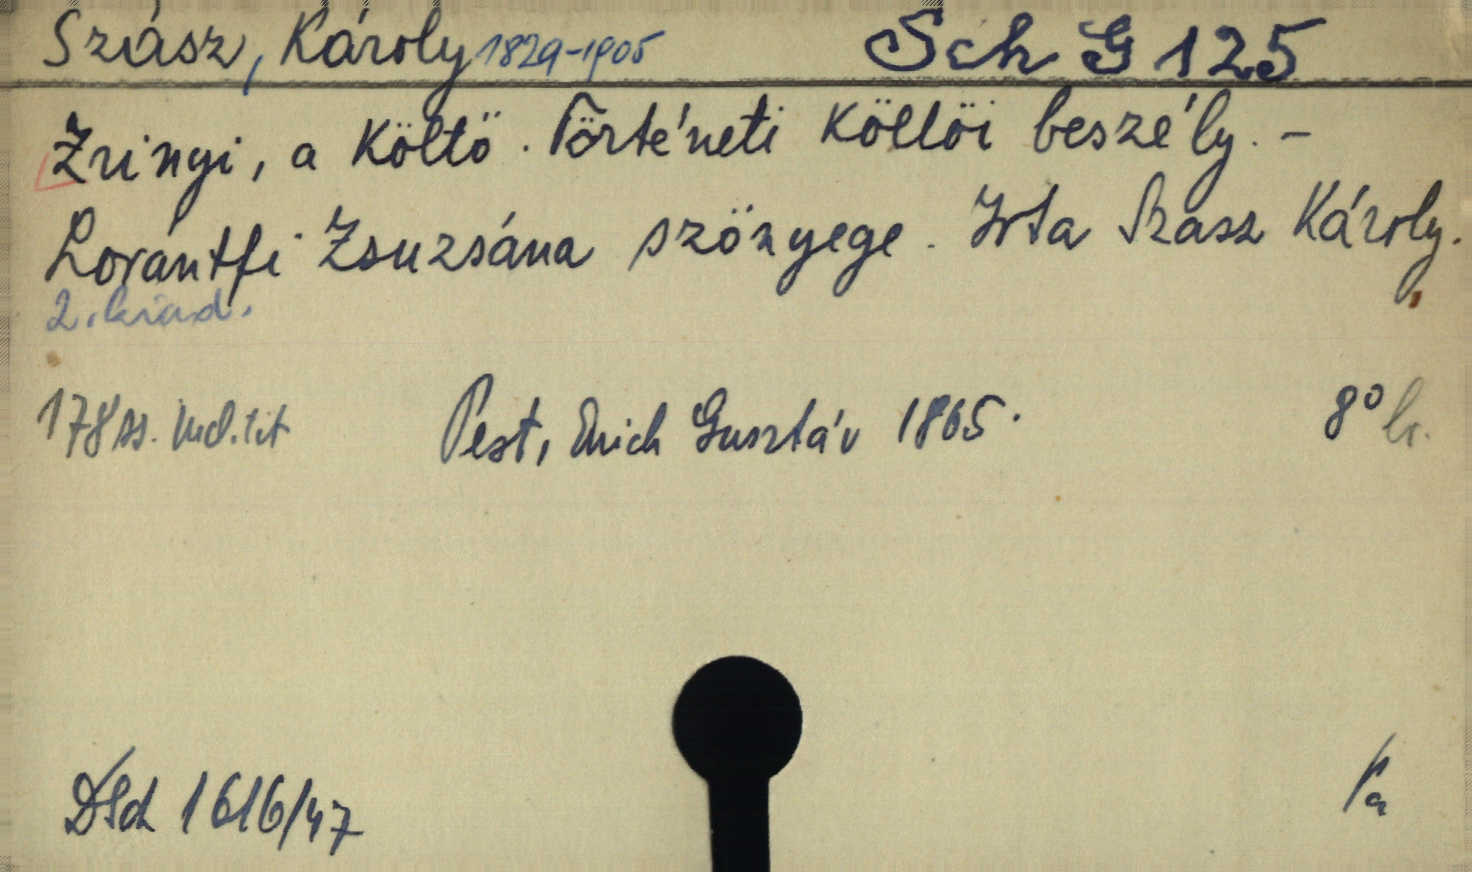 Szász, Károly 1829-1905 Sch G 125
Zrinyi, a Költö. Történeti Költöi beszély. -
Lorántfi Zsuzsána szönyege. Irta Szász Károly.
2. kiad.
178 ss. Pest, Emich Gusztáv 1865. 8° br.
DSch 1616/47